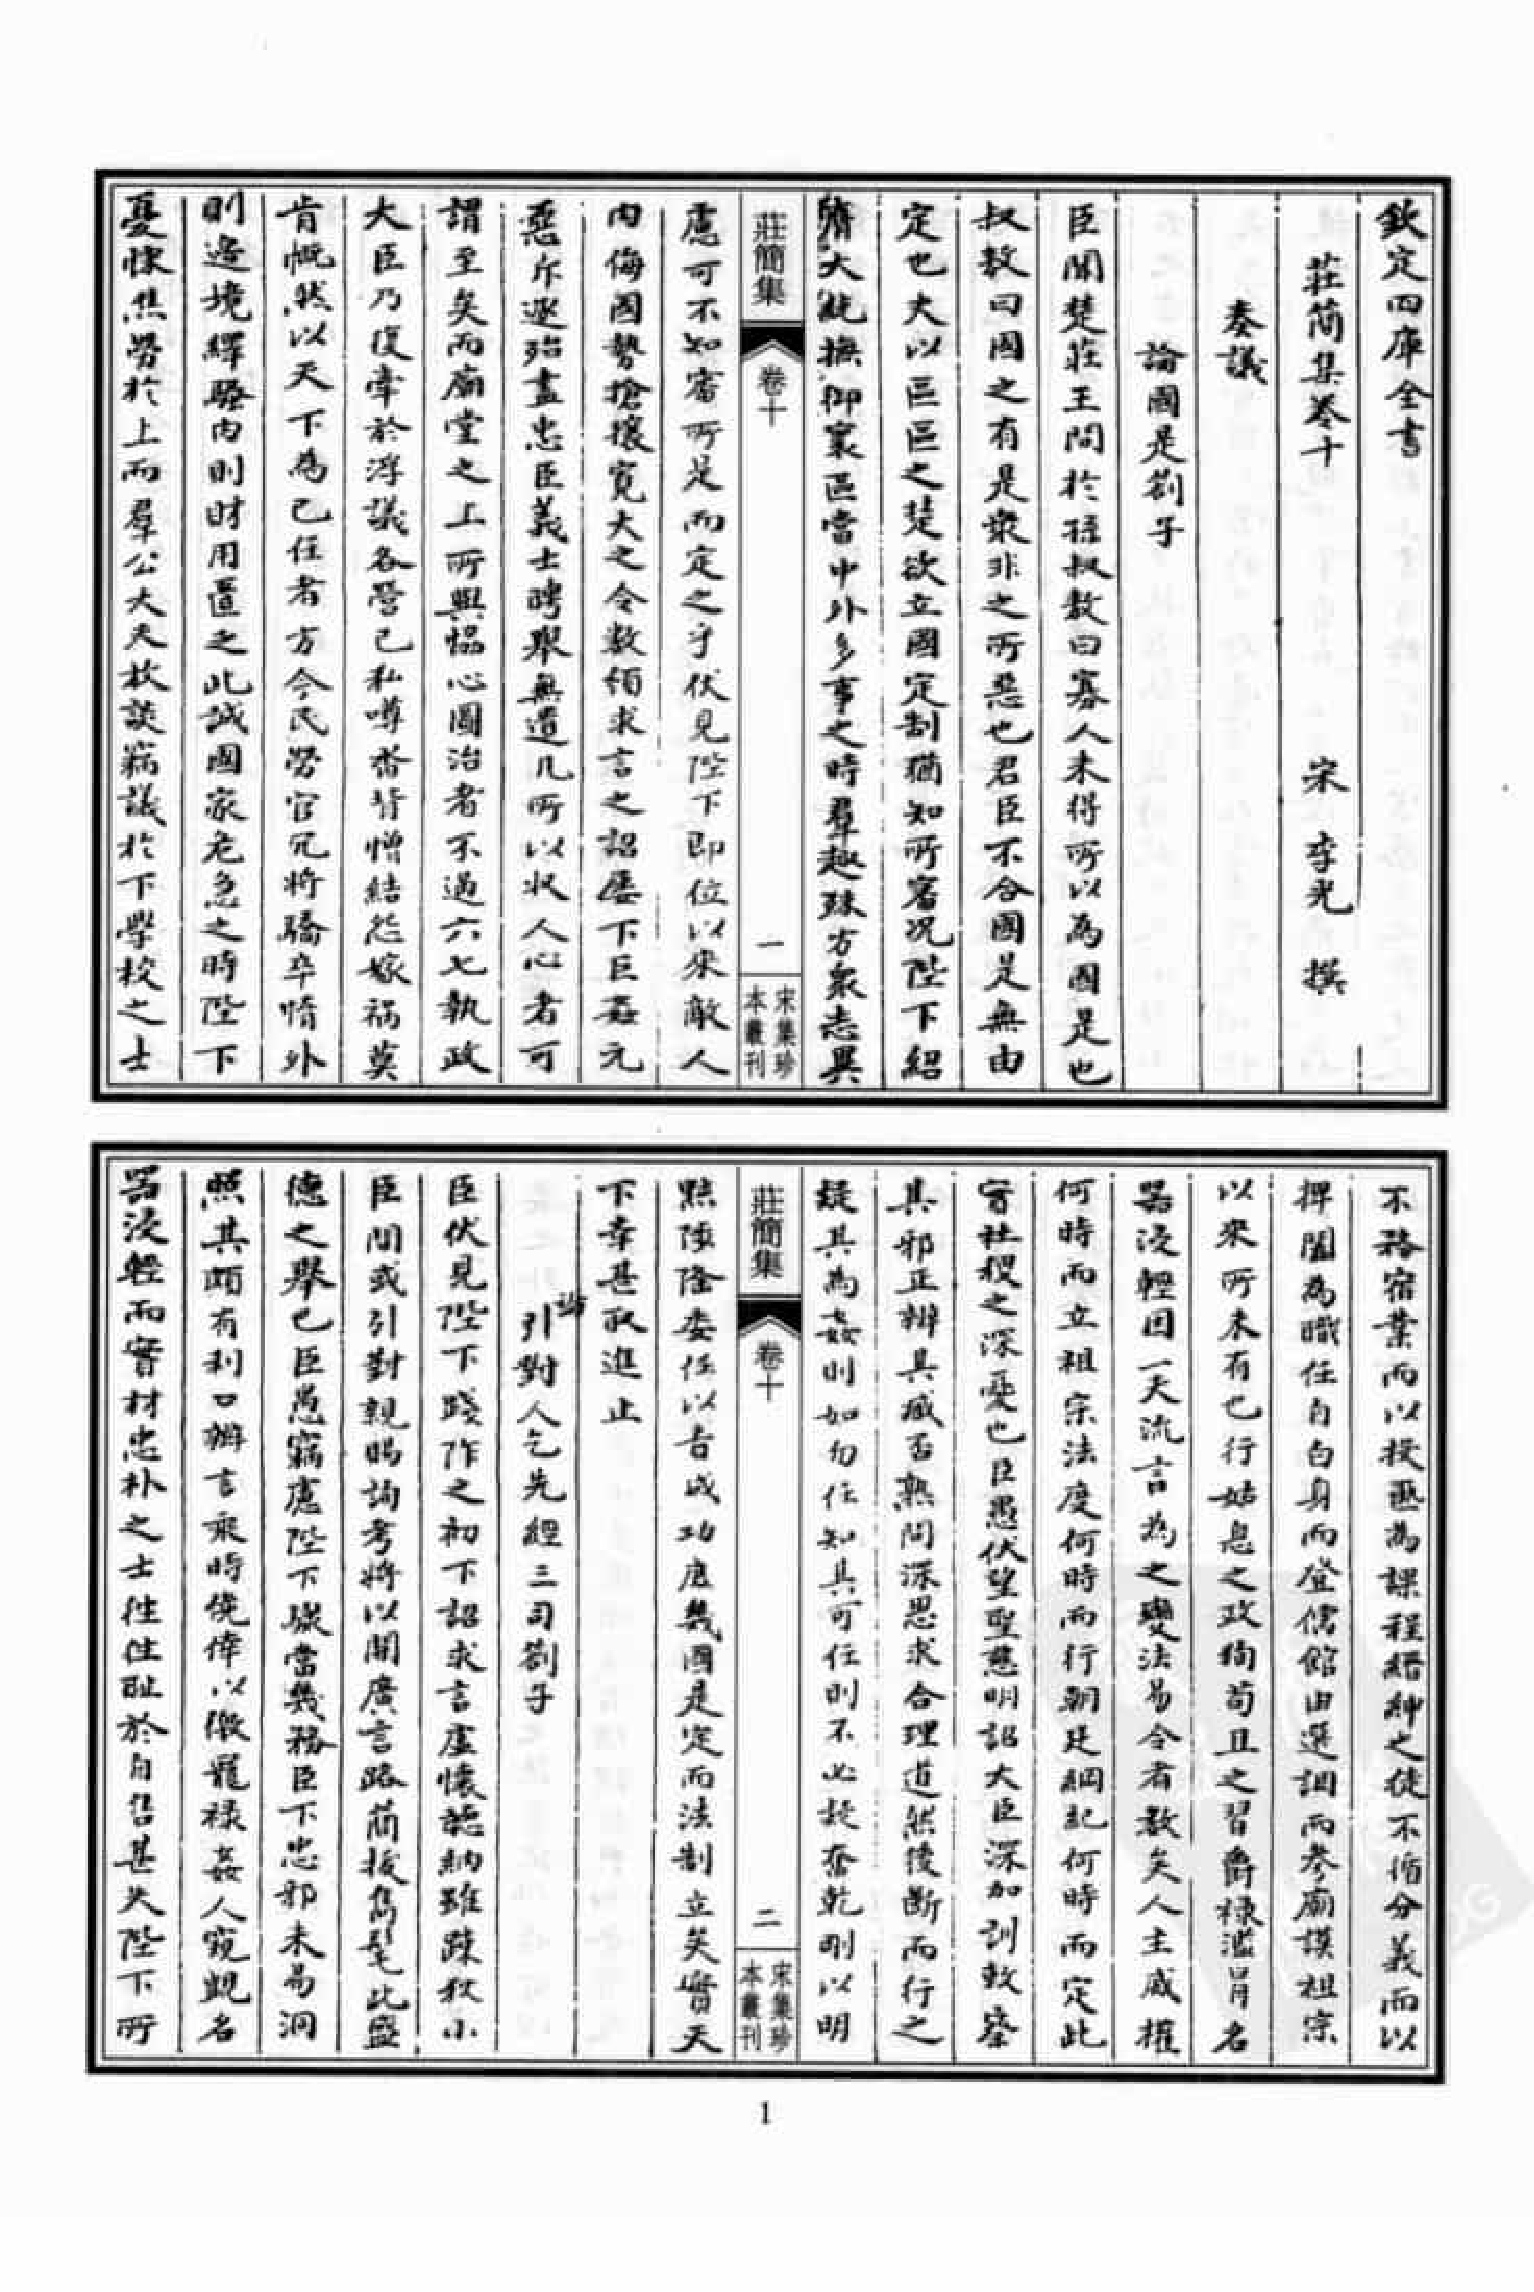 欽定四庫全書
莊簡集卷十　宋　李光　撰
奏議
論國是劄子
臣聞楚莊王問於孫叔敖曰寡人未得所以為國是也
叔敖曰國之有是衆非之所惡也君臣不合國是無由
定也夫以區區之楚欲立國定制猶知所審況陛下紹
膺大統撫御寰區當中外多事之時羣趣殊方衆志異
莊簡集
卷十
一
宋集珍
本叢刊
慮可不知審所是而定之乎伏見陛下即位以來敵人
内侮國勢搶攘寛大之令數頒求言之詔屡下巨姦元
惡斥逐殆盡忠臣義士聘舉無遺凡所以収人心者可
謂至矣而廟堂之上所與恊心圖治者不過六七執政
大臣乃復牽於浮議各營己私噂沓背憎結怨嫁禍莫
肯慨然以天下為己任者方今民勞官冗將驕卒惰外
則邉境繹騷内則財用匱乏此誠國家危急之時陛下
憂悚焦勞於上而羣公大夫枝談竊議於下學校之士
不務宿業而以投匭為課程縉紳之徒不循分義而以
捭闔為職任自白身而登儒館由選調而參廟謨祖宗
以來所未有也行姑息之政狥苟且之習爵祿濫冐名
器浸輕因一夫流言為之變法易令者数矣人主威權
何時而立祖宗法度何時而行朝廷綱紀何時而定此
實社稷之深憂也臣愚伏望聖慈明詔大臣深加訓敕察
其邪正辨其臧否熟問深思求合理道然後斷而行之
疑其為姦則如勿任知其可任則不必疑奮乾剛以明
莊簡集
卷十
二
宋集珍
本叢刊
黜陟隆委任以責成功庶幾國是定而法制立矣實天
下幸甚取進止
論引對人乞先經三司劄子
臣伏見陛下踐阼之初下詔求言虚懷聽納雖疎狄小
臣間或引對親賜詢考將以開廣言路蒐拔雋髦此盛
德之舉也臣愚竊慮陛下職當幾務臣下忠邪未易洞
照其頗有利口辯言乘時僥倖以徼寵祿姦人窺覬名
器浸輕而實材忠朴之士徃徃恥於自吕甚失陛下所